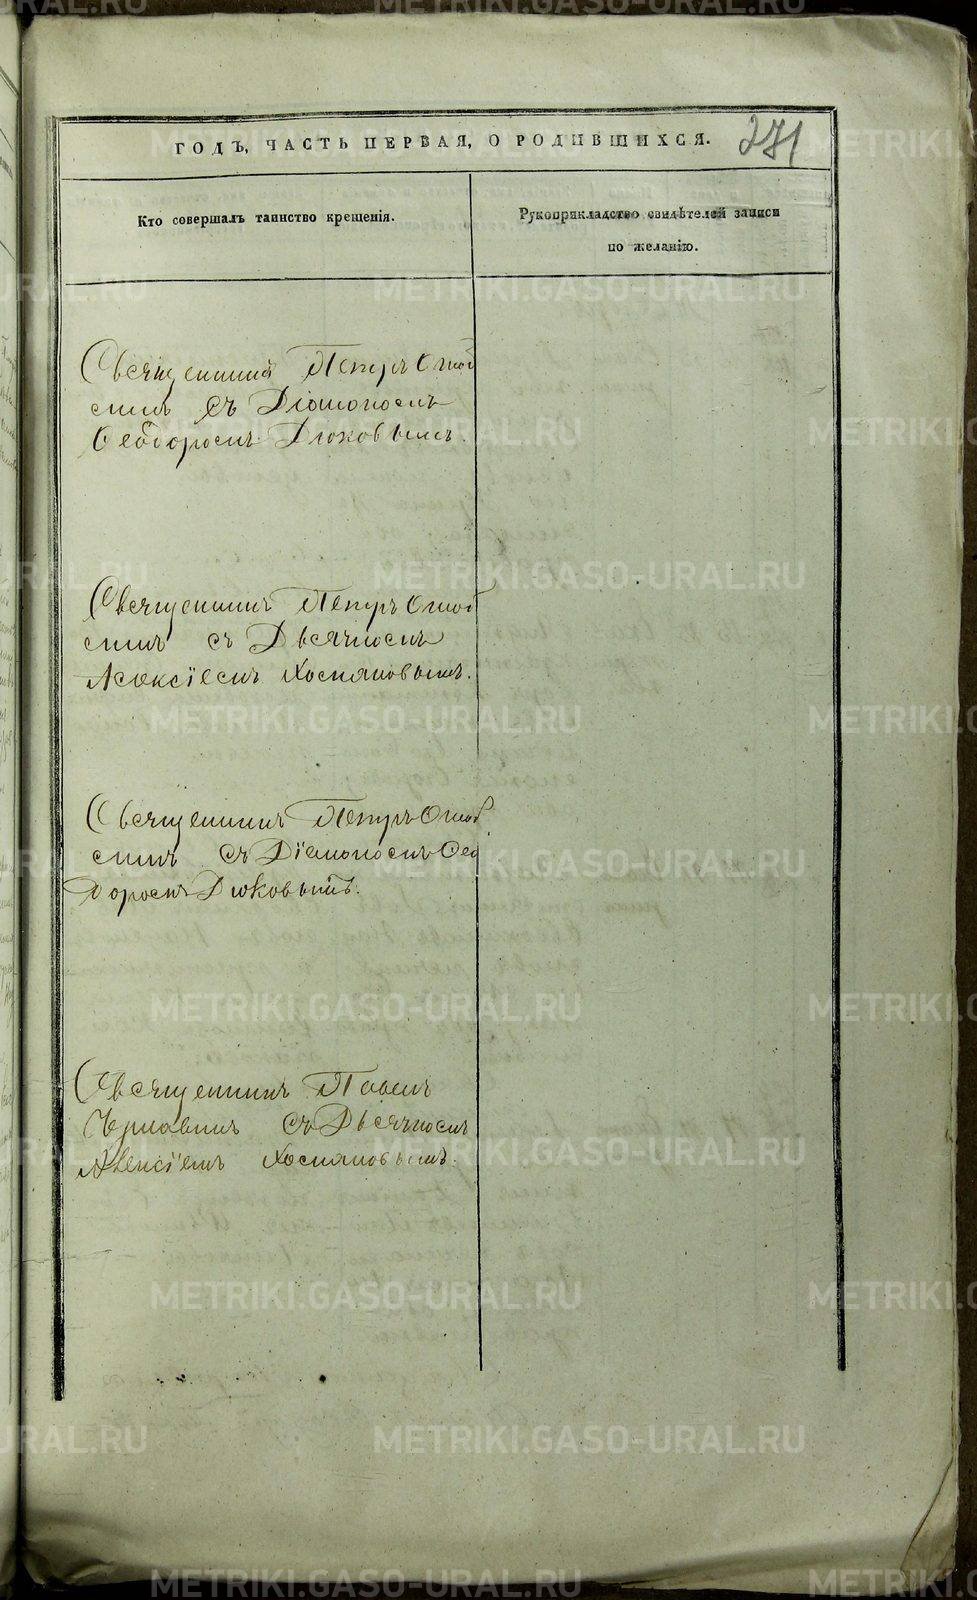 ГОДЪ, ЧАСТЬ ПЕРВАЯ, О РОДИВШИХСЯ. 271
Кто совершалъ таинство крещенія.
Рукоприкладство свидѣтелей записи
по желанію.
Священникъ Петръ
съ Діакономъ
Ѳеодоромъ Дюковымъ.
Священникъ Петръ
съ Дьячкомъ
Алексіемъ Хосяновымъ.
Священникъ Петръ
съ Діакономъ Ѳео
доромъ Дюковымъ.
Священникъ Павелъ
Чернавинъ съ Дьячкомъ
Алексіемъ Хосяновымъ.
METRIKI.GASO-URAL.RU